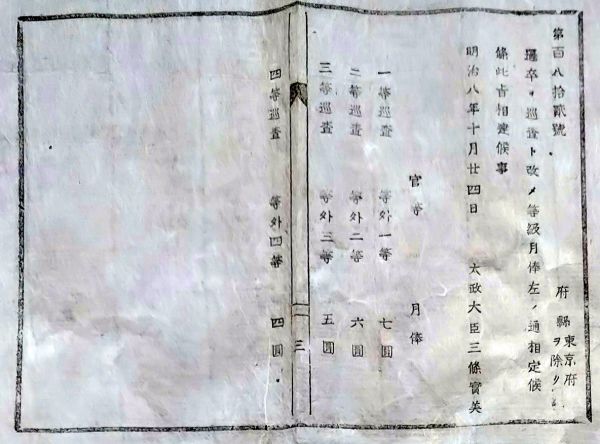 第百八拾貳號
府縣東京府ヲ除ク
邏卒ヲ巡査ト改メ等級月俸左ノ通相定候
條此旨相達候事
明治八年十月廿四日 太政大臣三條實美
官等 月俸
一等巡査 等外一等 七圓
二等巡査 等外二等 六圓
三等巡査 等外三等 五圓
三
四等巡査 等外四等 四圓